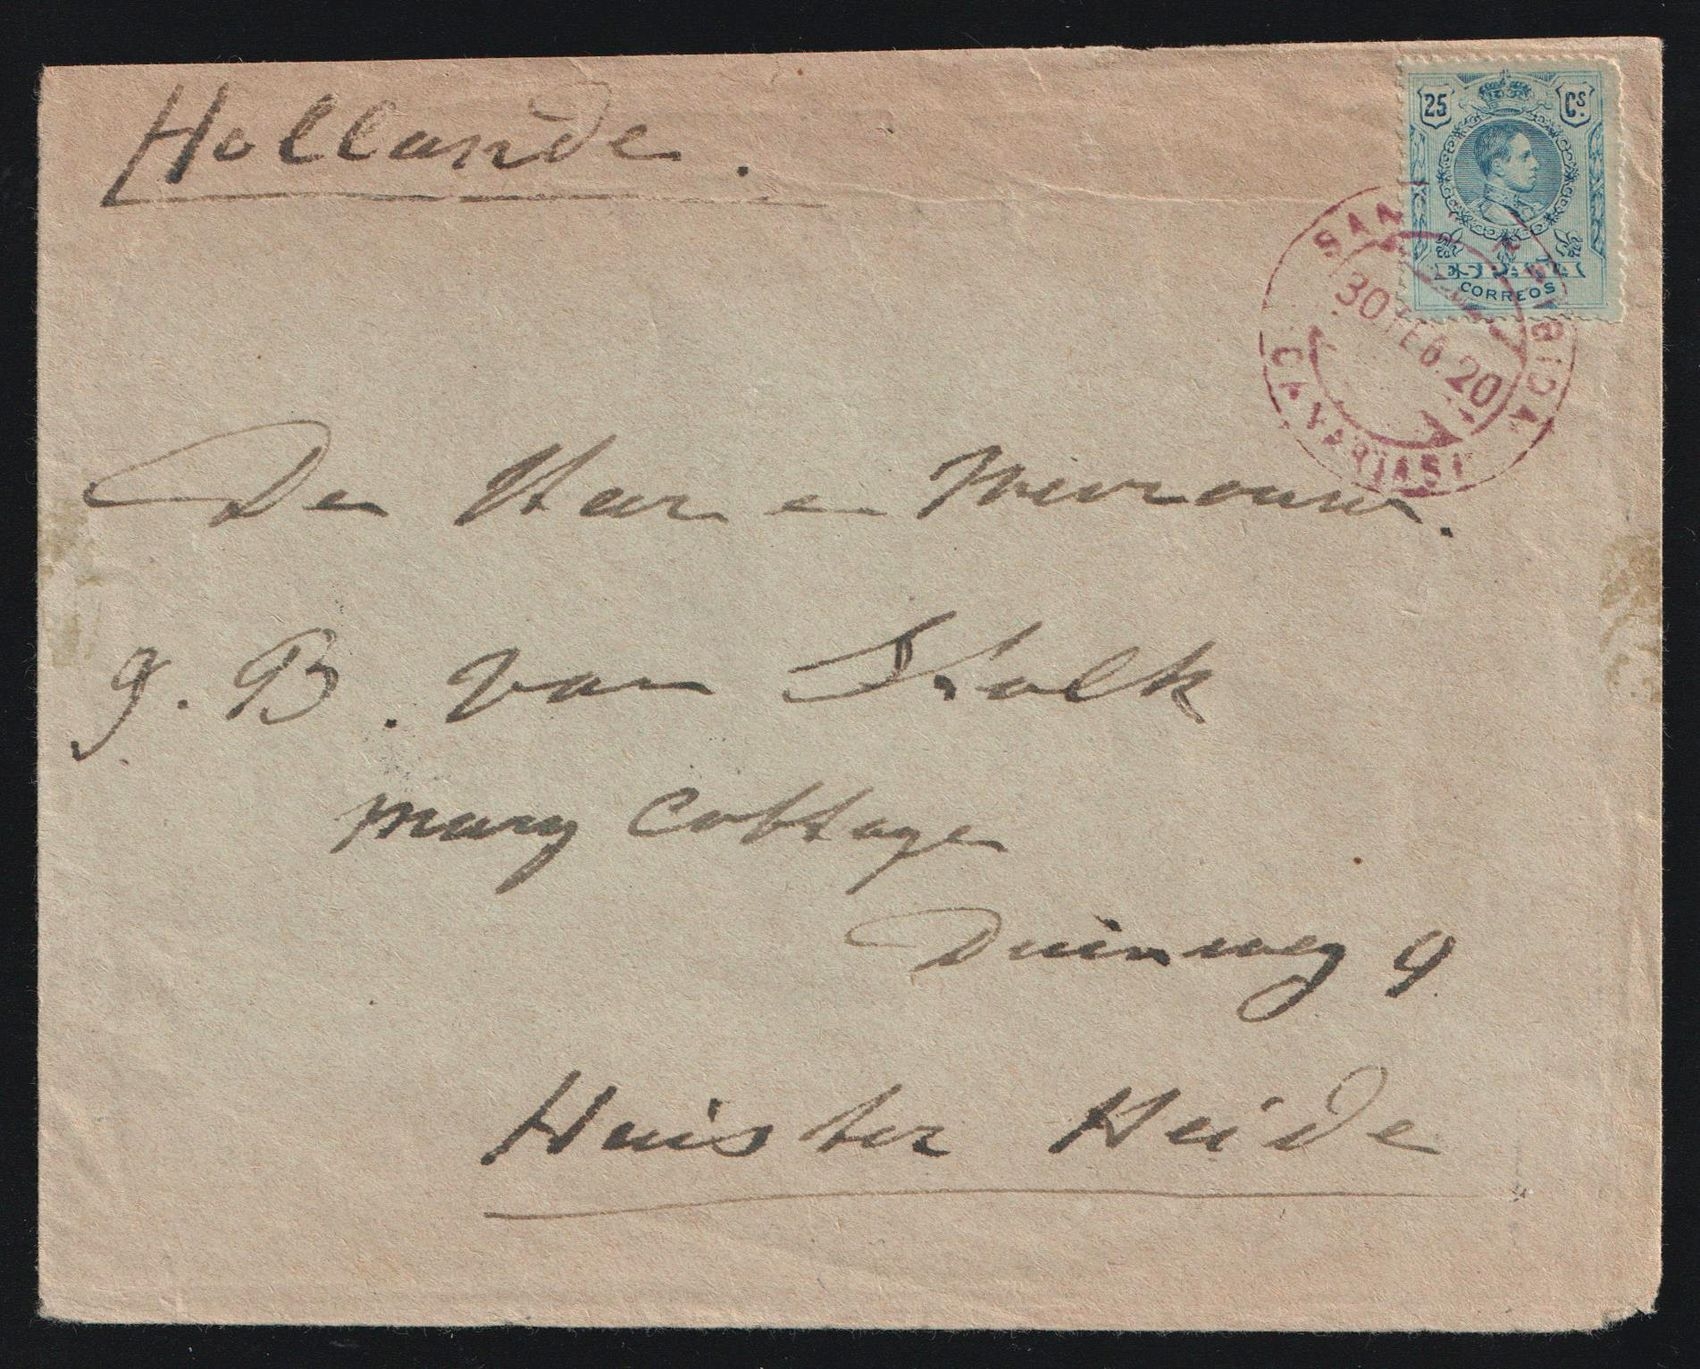 Hollande.
25 Cs
CORREOS
30 FEB. 20
De Heer en Mevrouw.
J. B. van Kolk
Mary Cottage
Duinweg 9
Huis ter Heide